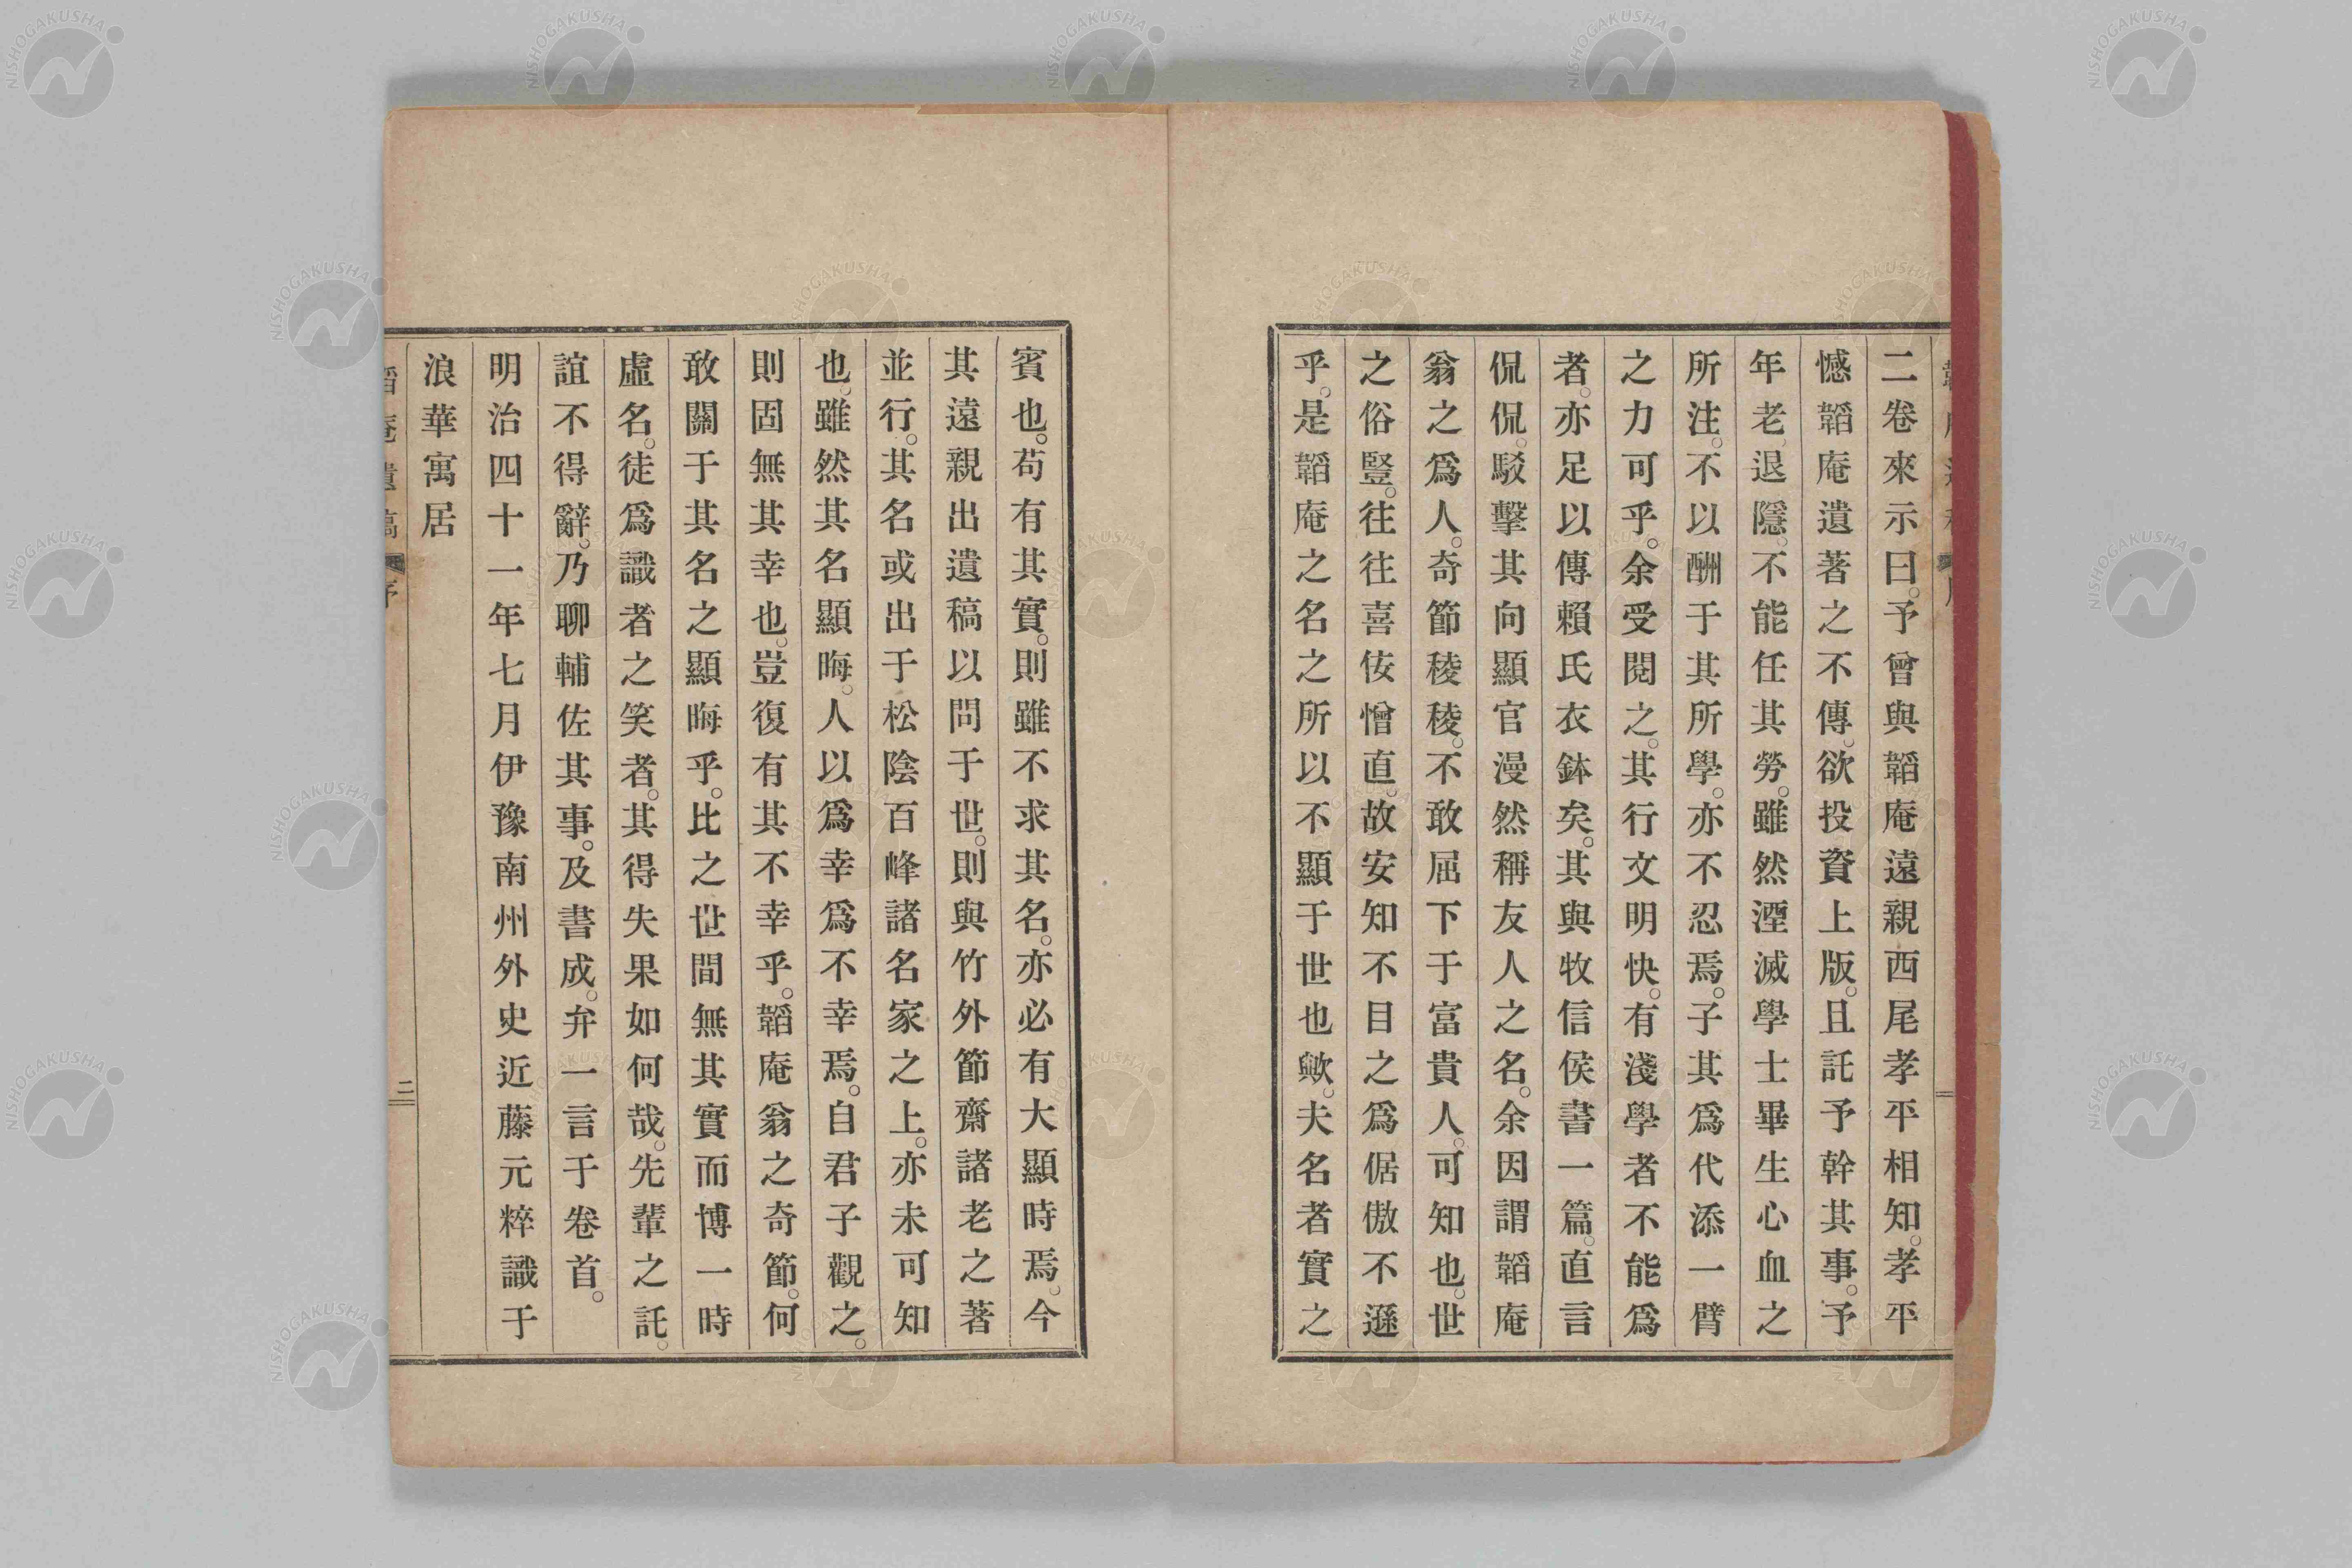 二卷來示曰。予曾與韜庵遠親西尾孝平相知。孝平
憾韜庵遺著之不傳。欲投資上版。且託予幹其事。予
年老退隱。不能任其勞。雖然湮滅學士畢生心血之
所注。不以酬于其所學。亦不忍焉。子其爲代添一臂
之力可乎。余受閱之。其行文明快。有淺學者不能爲
者。亦足以傳賴氏衣鉢矣。其與牧信侯書一篇。直言
侃侃。駁擊其向顯官漫然稱友人之名。余因謂韜庵
翁之爲人。奇節稜稜。不敢屈下于富貴人。可知也。世
之俗豎。往往喜侫憎直。故安知不目之爲倨傲不遜
乎。是韜庵之名之所以不顯于世也歟。夫名者實之
賓也。苟有其實。則雖不求其名。亦必有大顯時焉。今
其遠親出遺稿以問于世。則與竹外節齋諸老之著
並行。其名或出于松陰百峰諸名家之上。亦未可知
也。雖然其名顯晦。人以爲幸爲不幸焉。自君子觀之。
則固無其幸也。豈復有其不幸乎。韜庵翁之奇節。何
敢關于其名之顯晦乎。比之世間無其實而博一時
虛名。徒爲識者之笑者。其得失果如何哉。先輩之託。
誼不得辭。乃聊輔佐其事。及書成。弁一言于卷首。
明治四十一年七月伊豫南州外史近藤元粹識于
浪華寓居
韜庵遺稿 序 二
NISHOGAKUSHA